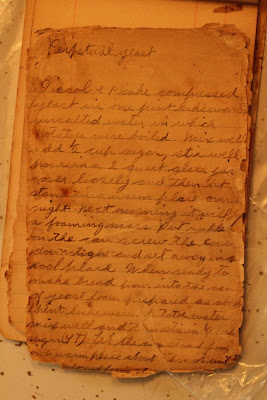 Perpetual yeast
Disolve 1 cake compressed
yeast in one pint lukewarm
unsalted water in which
potatoes were boild. Mix well
add ½ cup sugar, stir well
pour into 1 quart glass jar
cover loosely and then let
stand in warm place over
night. Next morning it will
a foaming mass. Put rubber
on the can screw the cover
down tight and set away in a
cool place. When ready to
make bread pour into the can
of yeast foam prepared as above
pint lukewarm potato water
mix well and
sugar let this stand
warm place about